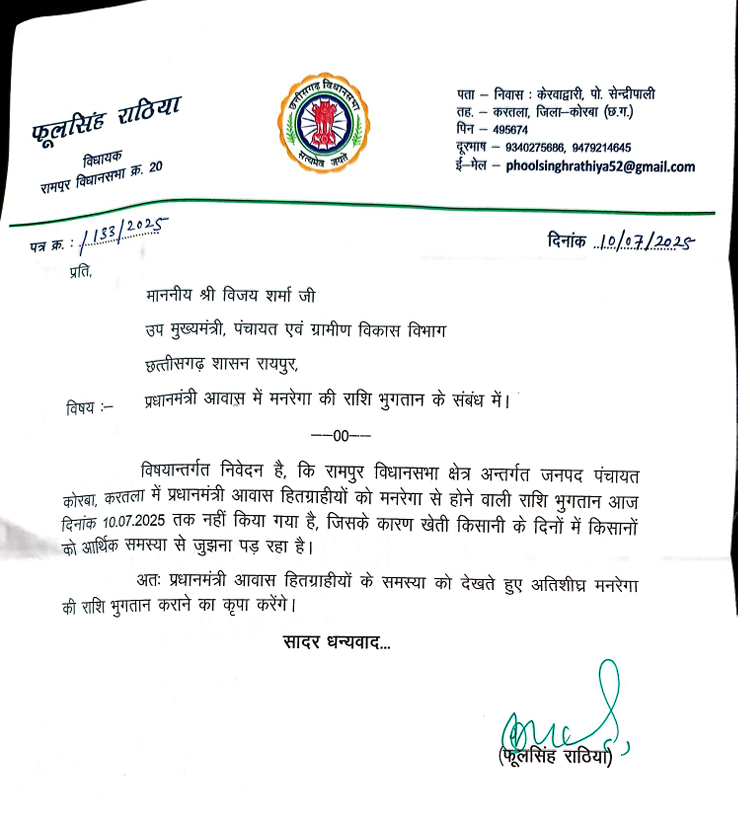 फूलसिंह राठिया
विधायक
रामपुर विधानसभा क्र. 20
छत्तीसगढ़ विधानसभा
सत्यमेव जयते
पता – निवास : केरवाद्वारी, पो. सेन्द्रीपाली
तह. – करतला, जिला–कोरबा (छ.ग.)
पिन – 495674
दूरभाष – 9340275686, 9479214645
ई–मेल – phoolsinghrathiya52@gmail.com
पत्र क्र. : /133/2025
दिनांक 10/07/2025
प्रति,
माननीय श्री विजय शर्मा जी
उप मुख्यमंत्री, पंचायत एवं ग्रामीण विकास विभाग
छत्तीसगढ़ शासन रायपुर,
विषय :– प्रधानमंत्री आवास में मनरेगा की राशि भुगतान के संबंध में।
––00––
विषयान्तर्गत निवेदन है, कि रामपुर विधानसभा क्षेत्र अन्तर्गत जनपद पंचायत
कोरबा, करतला में प्रधानमंत्री आवास हितग्राहीयों को मनरेगा से होने वाली राशि भुगतान आज
दिनांक 10.07.2025 तक नहीं किया गया है, जिसके कारण खेती किसानी के दिनों में किसानों
को आर्थिक समस्या से जुझना पड़ रहा है।
अतः प्रधानमंत्री आवास हितग्राहीयों के समस्या को देखते हुए अतिशीघ्र मनरेगा
की राशि भुगतान कराने का कृपा करेंगे।
सादर धन्यवाद...
(फूलसिंह राठिया)